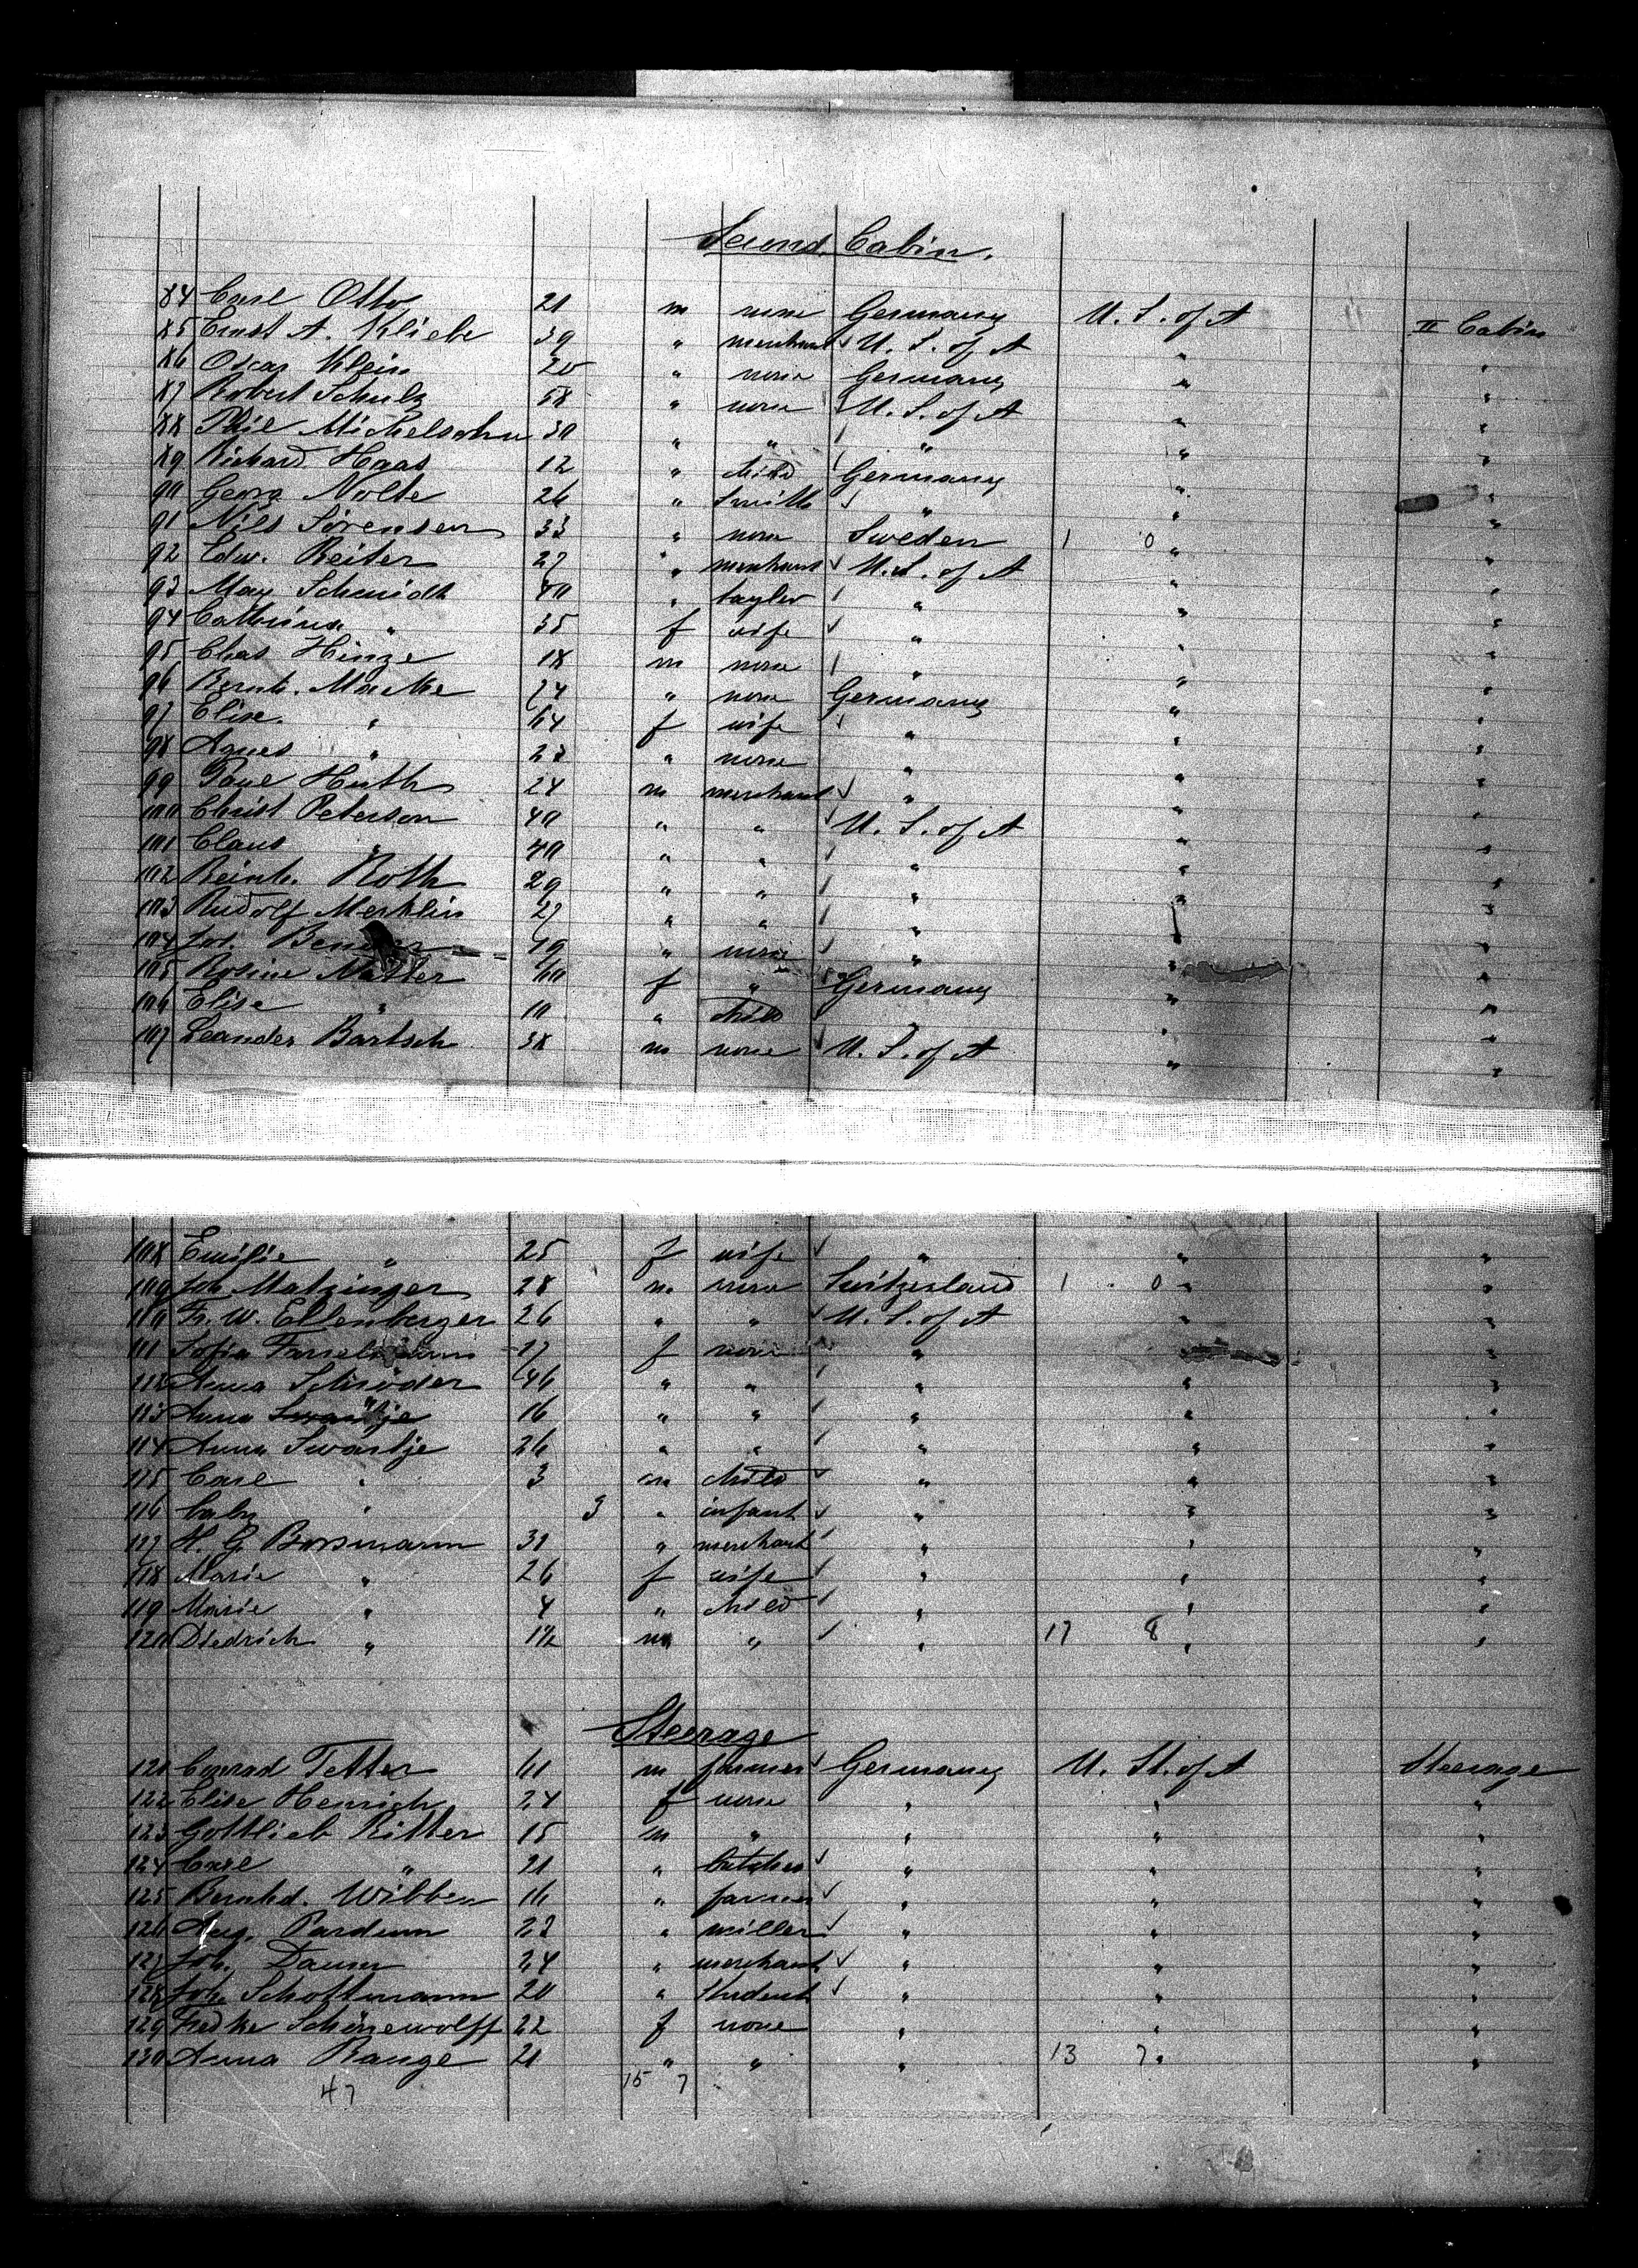 Second Cabin.
84 Carl Otto 21 m none Germany U. S. of A II Cabin
85 Ernst A. Kliebe 39 " merchant U. S. of A " "
86 Oscar Klein 20 " none Germany " "
87 Robert Schulz 58 " none U. S. of A " "
88 Phil Michelsohn 30 " " " " "
89 Richard Haas 12 " child Germany " "
90 Georg Nolte 26 " Smith " " "
91 Nils Sörensen 33 " none Sweden 1 0 " "
92 Edw. Reiter 27 " merchant U. S. of A " "
93 Max Schmidt 40 " taylor " " "
94 Catharina " 35 f wife " " "
95 Chas Hinze 18 m none " " "
96 Bernh. Macke 74 " none Germany " "
97 Elise " 64 f wife " " "
98 Agnes " 23 " none " " "
99 Paul Huth 24 m merchant " " "
100 Christ Peterson 40 " " U. S. of A " "
101 Claus " 40 " " " " "
102 Reinh. Roth 29 " " " " "
103 Rudolf Merklin 27 " " " " "
104 Joh. 19 " none " " "
105 Rosine 60 f " Germany " "
106 Elise " 10 " child " "
107 Leander Bartsch 38 m none U. S. of A " "
108 Emilie " 25 f wife " " "
109 Joh. Matzinger 28 m. none Switzerland 1 0 " "
110 Fr. W. Ellenberger 26 " " U. S. of A " "
111 Sofia 17 f none " " "
112 Anna Schröder 46 " " " " "
113 Anna Swantje 16 " " " " "
114 Anna Swartje 26 " " " " "
115 Carl " 3 m child " " "
116 baby " 3 " infant " " "
117 H. G. Borsmann 31 " merchant " " "
118 Marie " 26 f wife " " "
119 Marie " 4 " child " " "
120 Diedrich " 1½ m " " 17 8 " "
Steerage
121 Conrad Tetter 61 m farmer Germany U. St. of A Steerage
122 Elise Henrich 24 f none " " "
123 Gottlieb Ritter 15 m " " " "
124 Carl " 21 " butcher " " "
125 Bernhd. Wibben 16 " farmer " " "
126 Aug. Pardunn 23 " miller " " "
127 Joh. Daum 24 " merchant " " "
128 Joh. Schottmann 20 " Student " " "
129 Fredke Schönewolff 22 f none " " "
130 Anna Range 21 " " " 13 7 " "
47 15 7